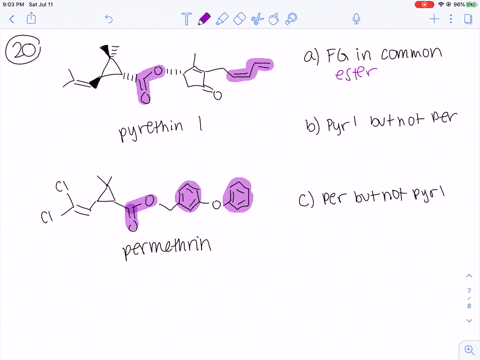 9:03 PM Sat Jul 11
96%
20
a) FG in common
ester
O
O
O
pyrethin 1
b) Pyr1 but not per
Cl
Cl
O
O
O
c) per but not pyr1
permethrin
7
/
8